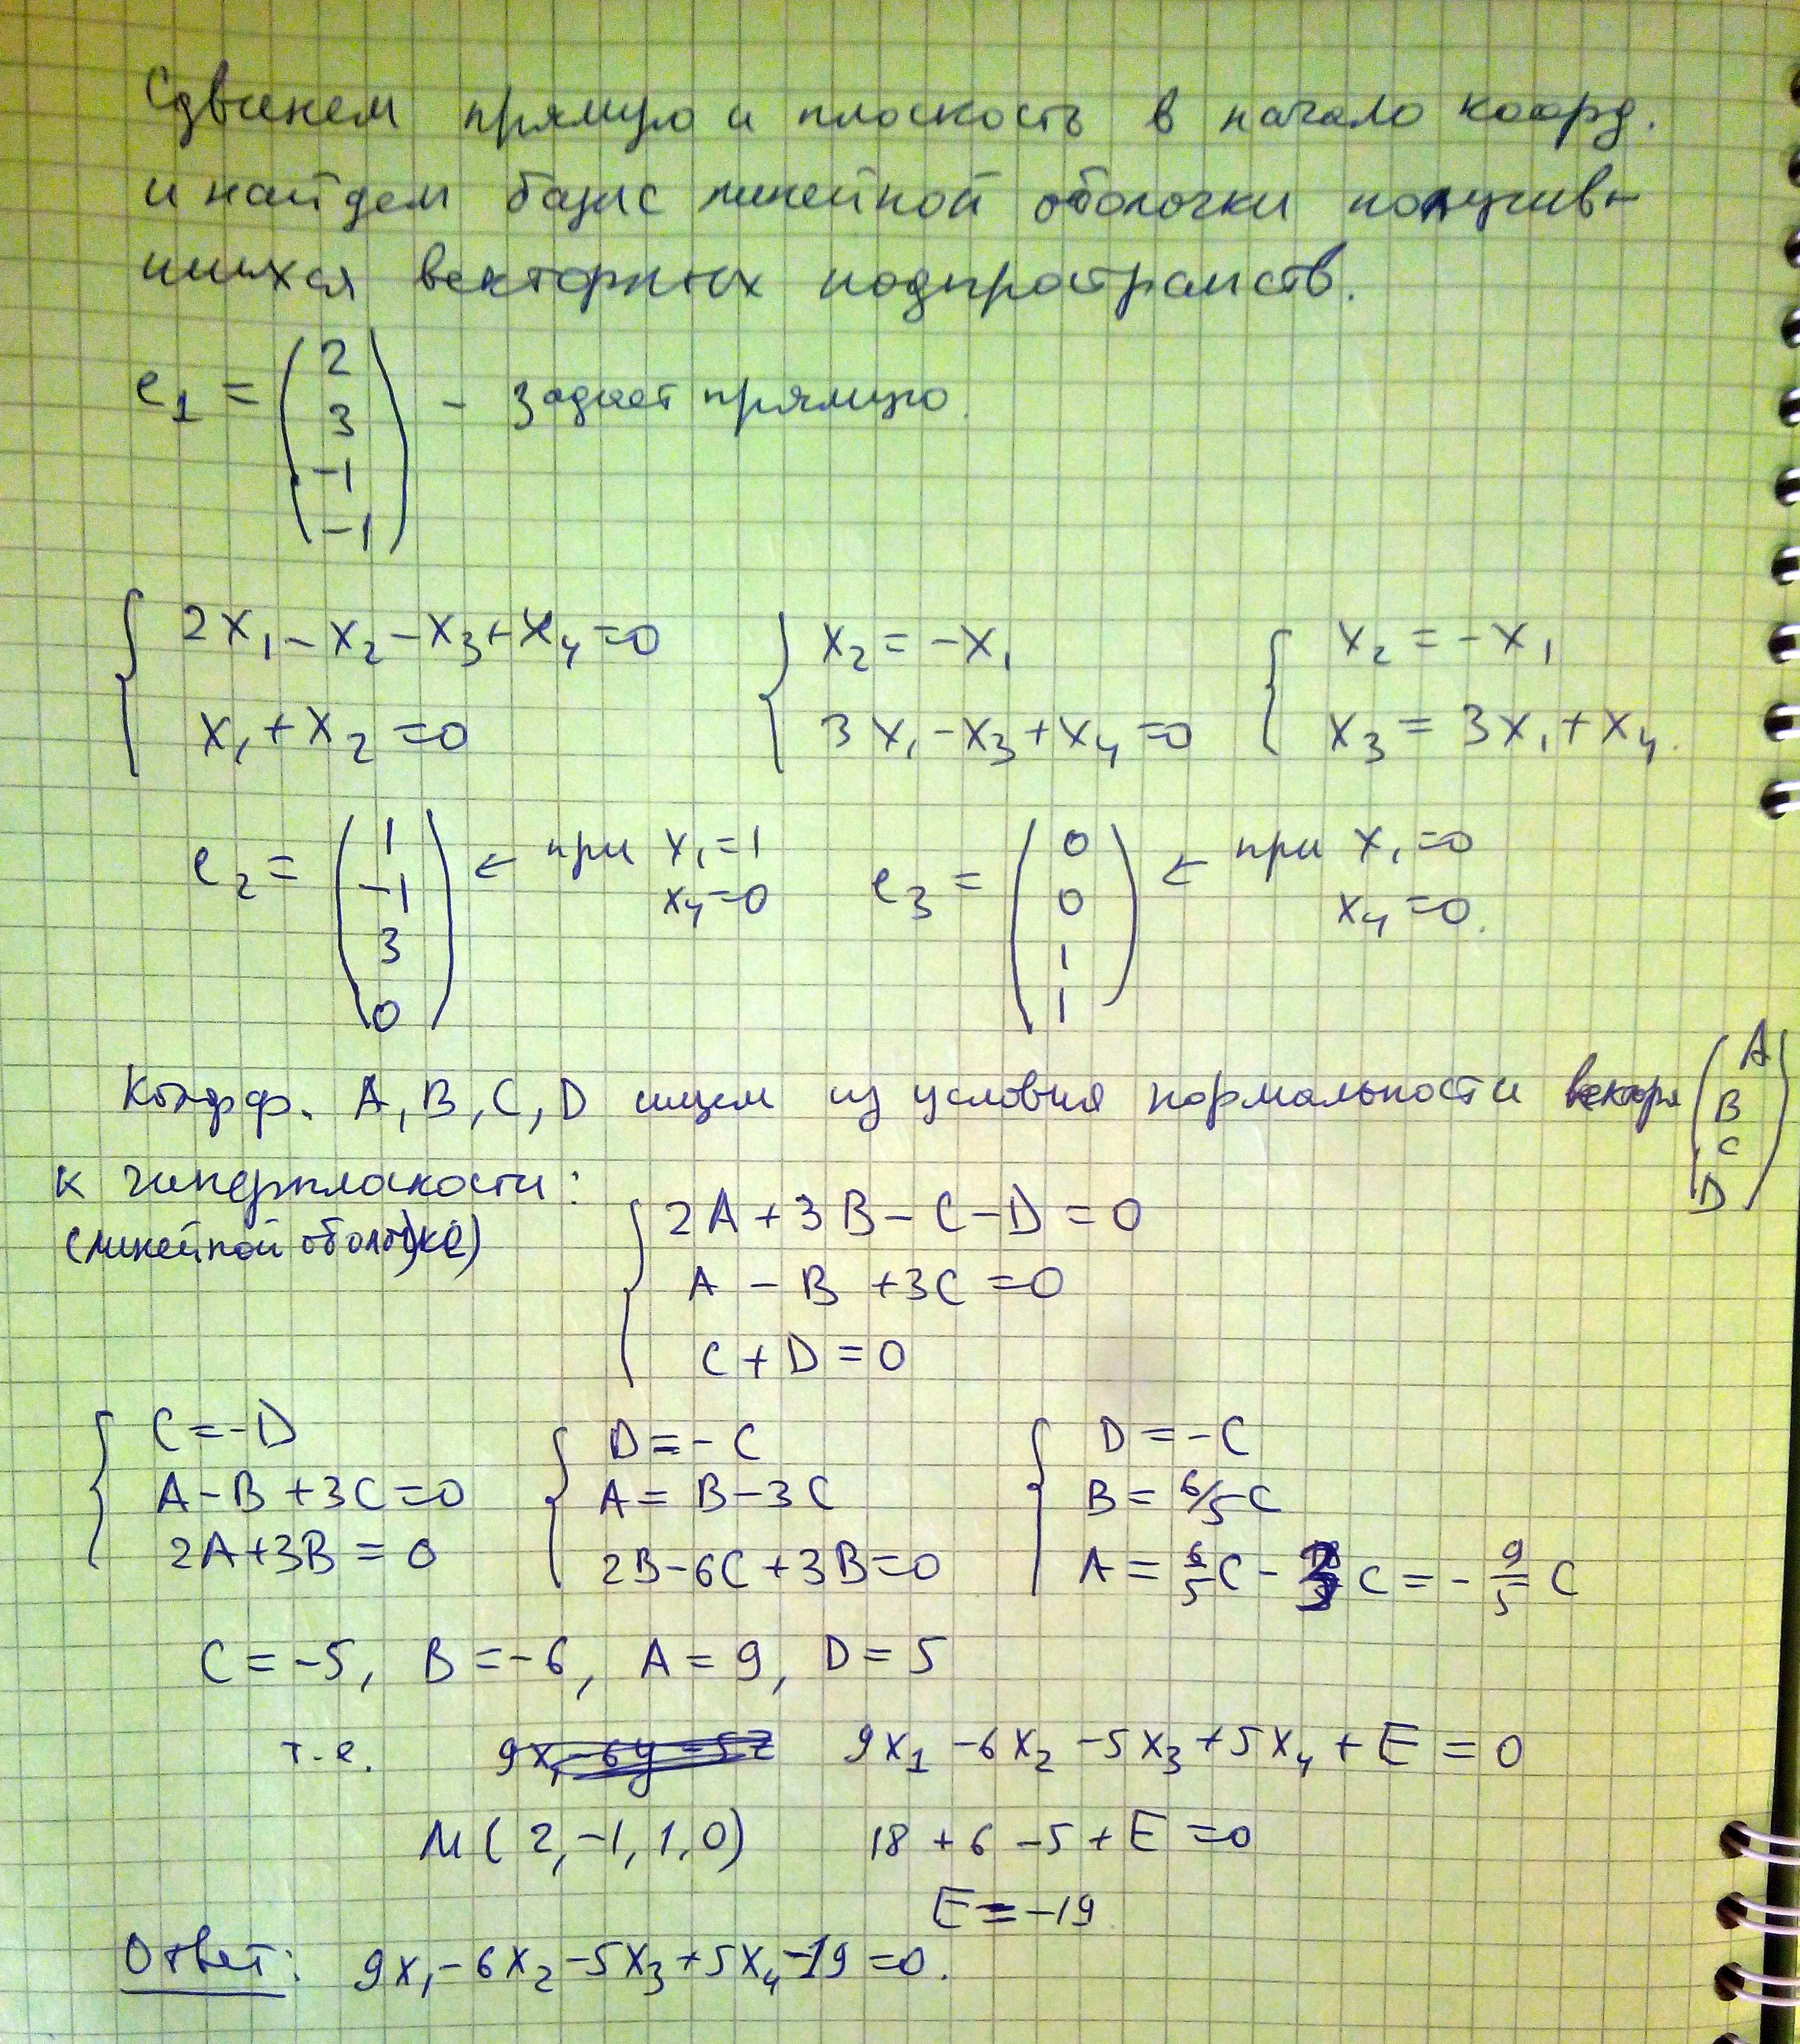 Сдвинем прямую и плоскость в начало коорд.
и найдем базис линейной оболочки получив-
шихся векторных подпространств.
e₁ = (2 3 -1 -1) - задает прямую.
{ 2x₁ - x₂ - x₃ + x₄ = 0 { x₂ = -x₁ { x₂ = -x₁
x₁ + x₂ = 0 3x₁ - x₃ + x₄ = 0 x₃ = 3x₁ + x₄.
e₂ = (1 -1 3 0) ← при x₁ = 1 x₄ = 0 e₃ = (0 0 1 1) ← при x₁ = 0 x₄ = 0.
Коэфф. A, B, C, D ищем из условия нормальности вектора (A B C D)
к гиперплоскости:
(линейной оболочке)
{ 2A + 3B - C - D = 0
A - B + 3C = 0
C + D = 0
{ C = -D { D = -C { D = -C
A - B + 3C = 0 A = B - 3C B = 6/5 C
2A + 3B = 0 2B - 6C + 3B = 0 A = 6/5 C - 3C = - 9/5 C
C = -5, B = -6, A = 9, D = 5
т.е. 9x₁ - 6y - 5z 9x₁ - 6x₂ - 5x₃ + 5x₄ + E = 0
M(2, -1, 1, 0) 18 + 6 - 5 + E = 0
E = -19
Ответ: 9x₁ - 6x₂ - 5x₃ + 5x₄ - 19 = 0.